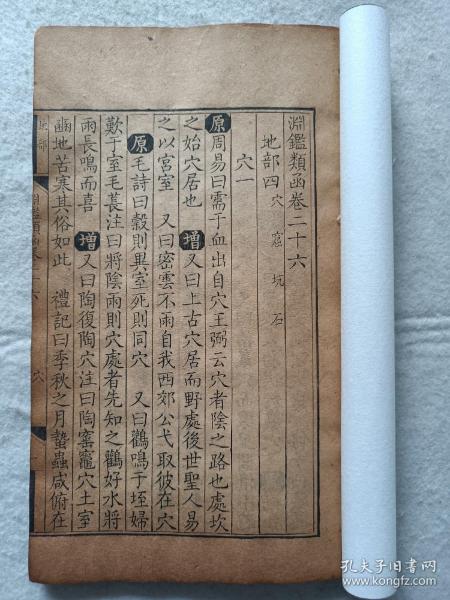 淵鑑類函卷二十六
地部四 穴 窟 坑 石
穴一
原周易曰需于血出自穴王弼云穴者陰之路也處坎
之始穴居也 增又曰上古穴居而野處後世聖人易
之以宮室 又曰密雲不雨自我西郊公弋取彼在穴
原毛詩曰穀則異室死則同穴 又曰鸛鳴于垤婦
歎于室毛萇注曰將陰雨則穴處者先知之鸛好水將
雨長鳴而喜 增又曰陶復陶穴注曰陶窰竈穴土室
豳地苦寒其俗如此 禮記曰季秋之月蟄蟲咸俯在
淵鑑類函卷二十六 穴
孔夫子旧书网
www.kongfz.com